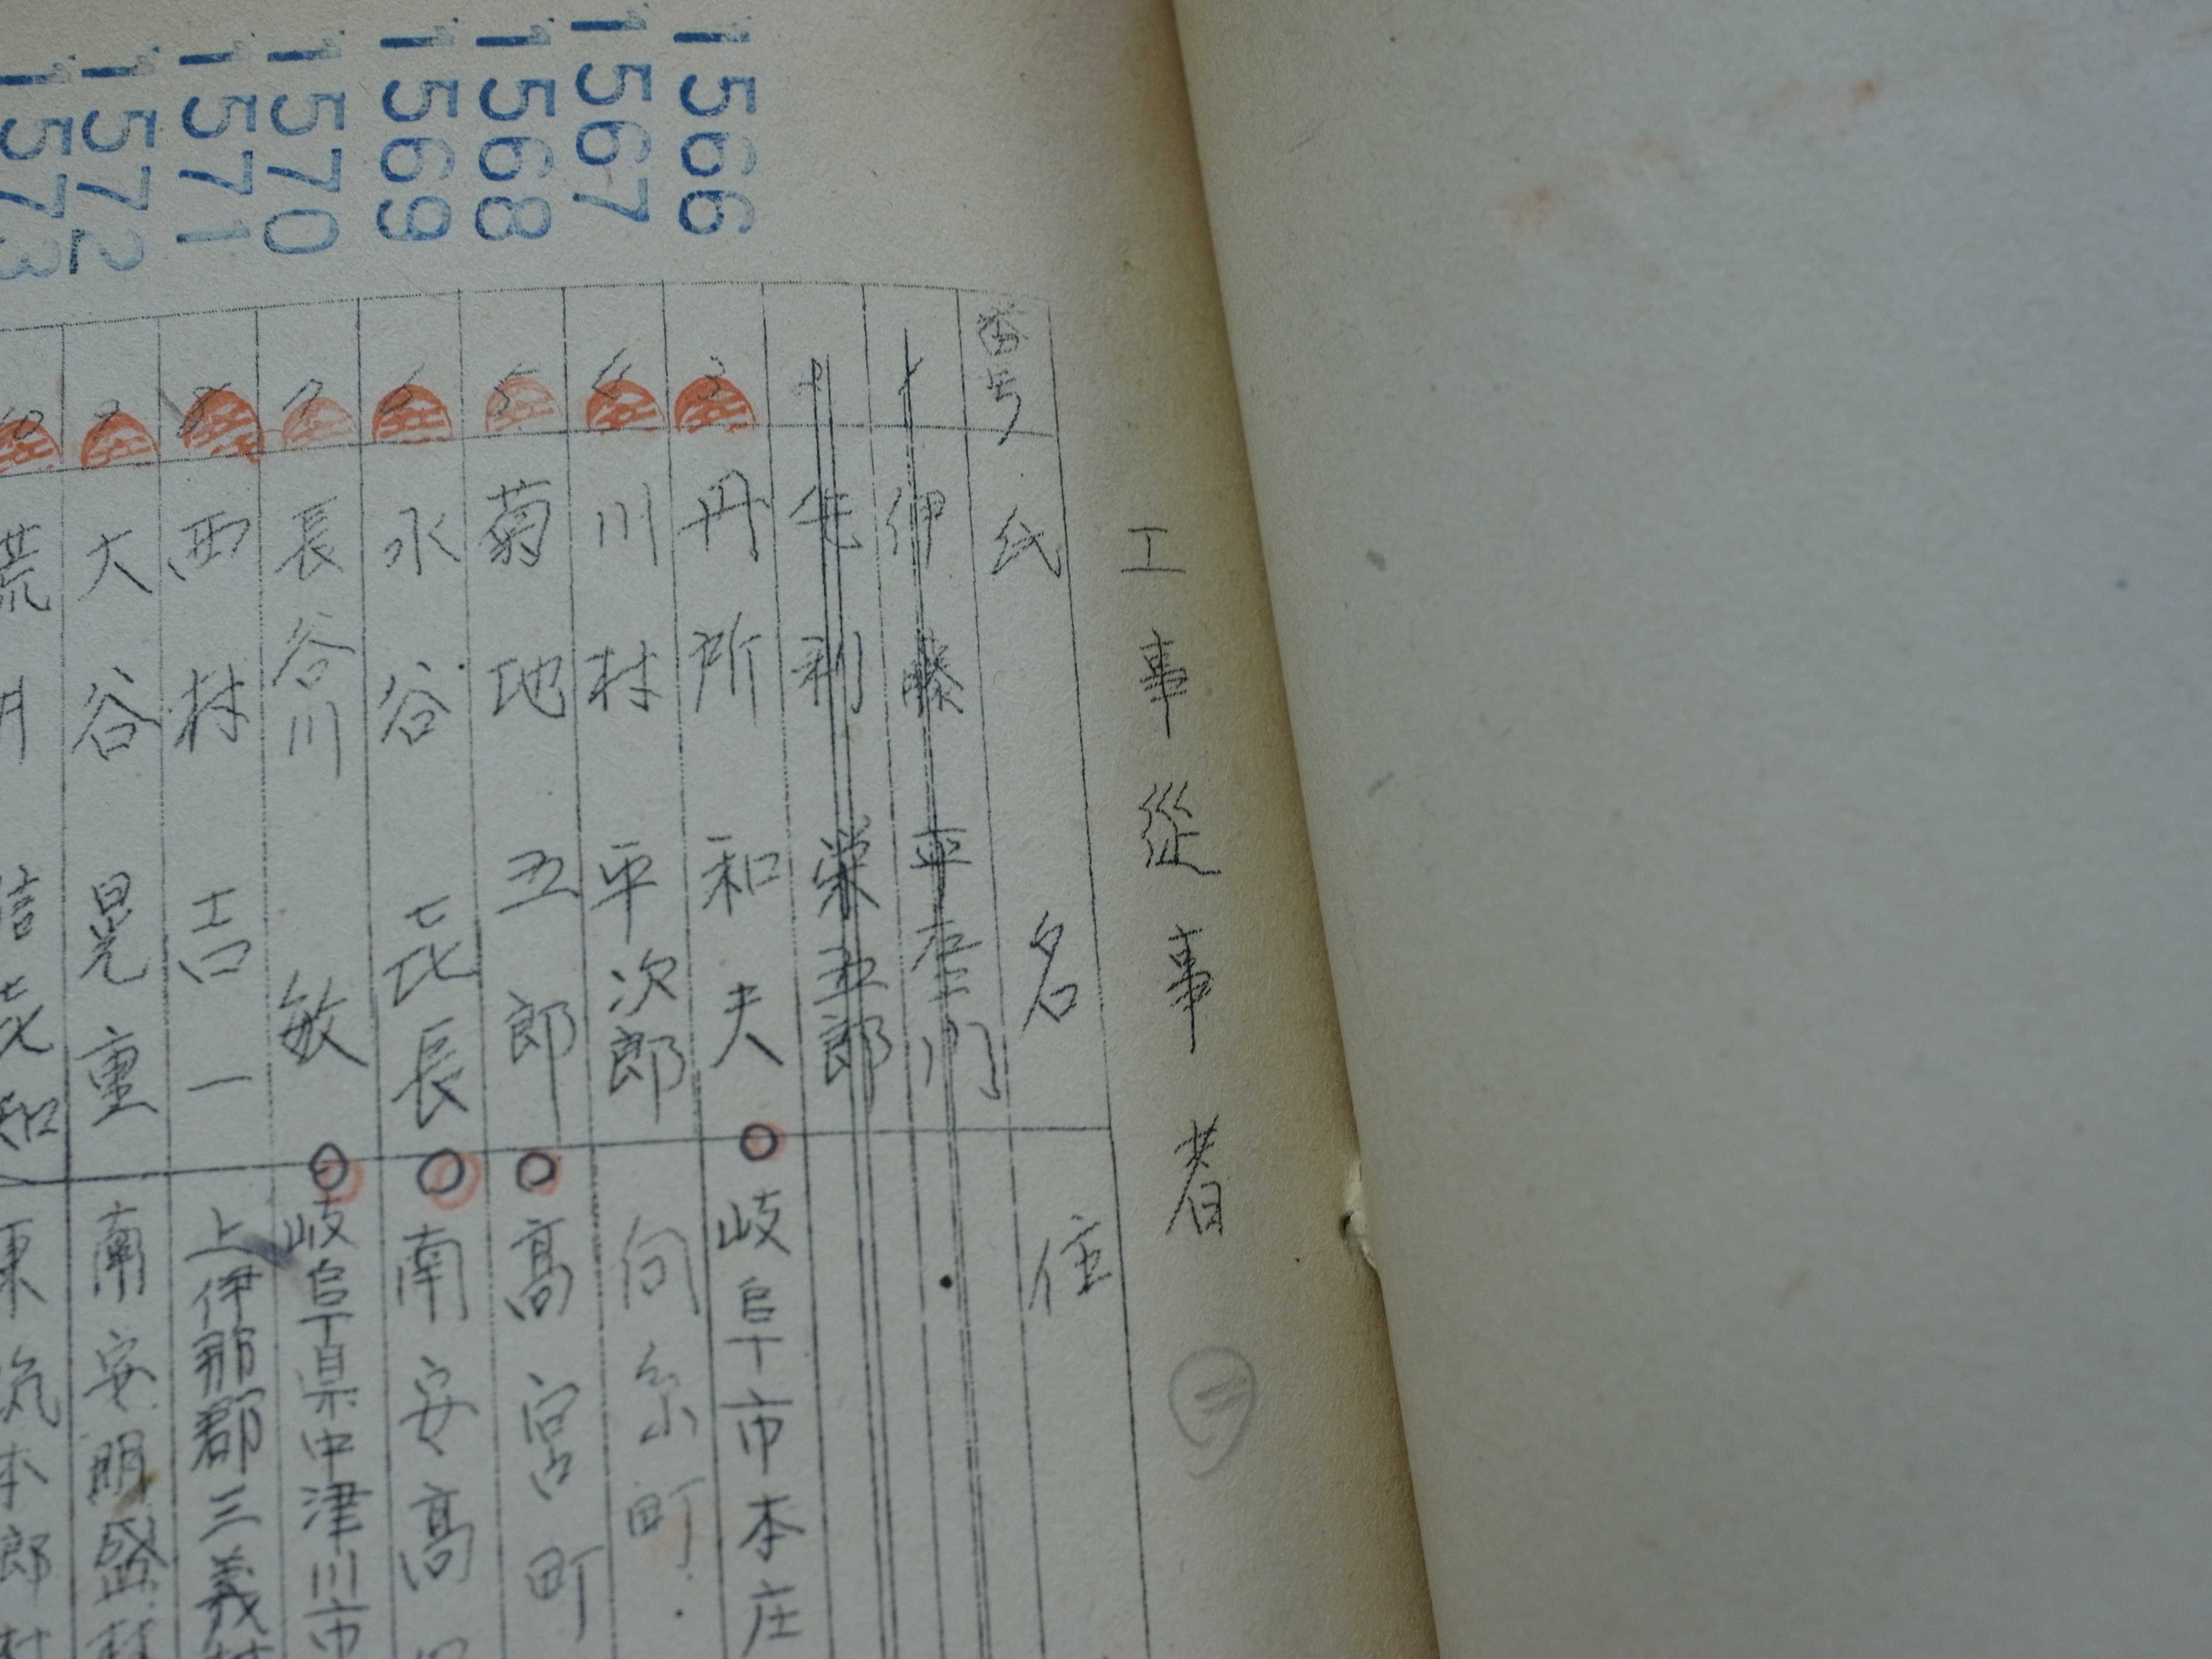 工事従事者
番号 氏名 住
1 伊藤 平左エ門
2 足利 栄五郎
1566 3 丹所 和夫 岐阜市本庄
1567 4 川村 平次郎 向糸町
1568 5 菊地 五郎 高宮町
1569 6 水谷 㐂長 南安高
1570 7 長谷川 敏 岐阜県中津川市
1571 8 西村 吉一 上伊那郡三義村
1572 9 大谷 晃重 南安明盛村
1573 10 荒 信㐂知 東筑本郎村